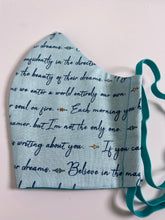 confidently in the directio
the beauty of their dreams
we unto a world entirely our own
soul on fire. Each morning you ha
eamer, but I'm not the only one.
writing about you. If you can
dreams. Believe in the mag